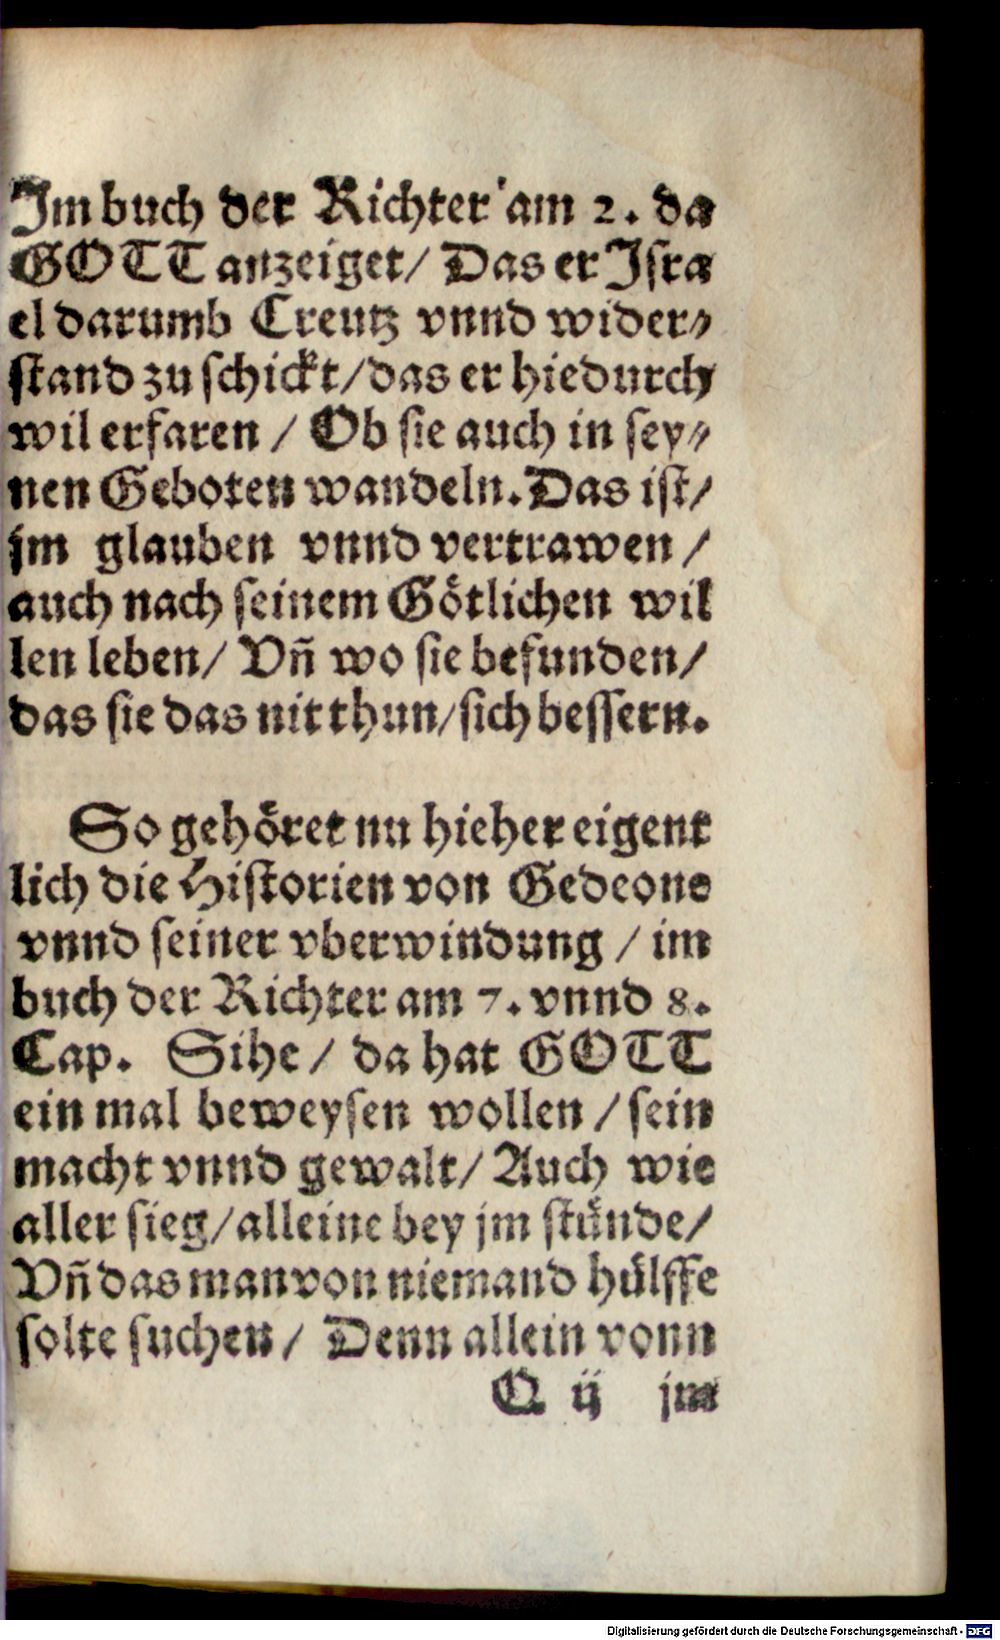 Im buch der Richter am 2. da
GOTT anzeiget/ Das er Isra
el darumb Creutz vnnd wider⸗
stand zu schickt/das er hiedurch
wil erfaren / Ob sie auch in sey⸗
nen Geboten wandeln. Das ist/
jm glauben vnnd vertrawen /
auch nach seinem Götlichen wil
len leben/ Vñ wo sie befunden/
das sie das nit thun/sich bessern.
So gehöret nu hieher eigent
lich die Historien von Gedeone
vnnd seiner vberwindung / im
buch der Richter am 7. vnnd 8.
Cap. Sihe / da hat GOTT
ein mal beweysen wollen / sein
macht vnnd gewalt/ Auch wie
aller sieg/alleine bey jm stünde/
Vñ das man von niemand hülffe
solte suchen/ Denn allein vonn
Q ij jm
Digitalisierung gefördert durch die Deutsche Forschungsgemeinschaft - DFG